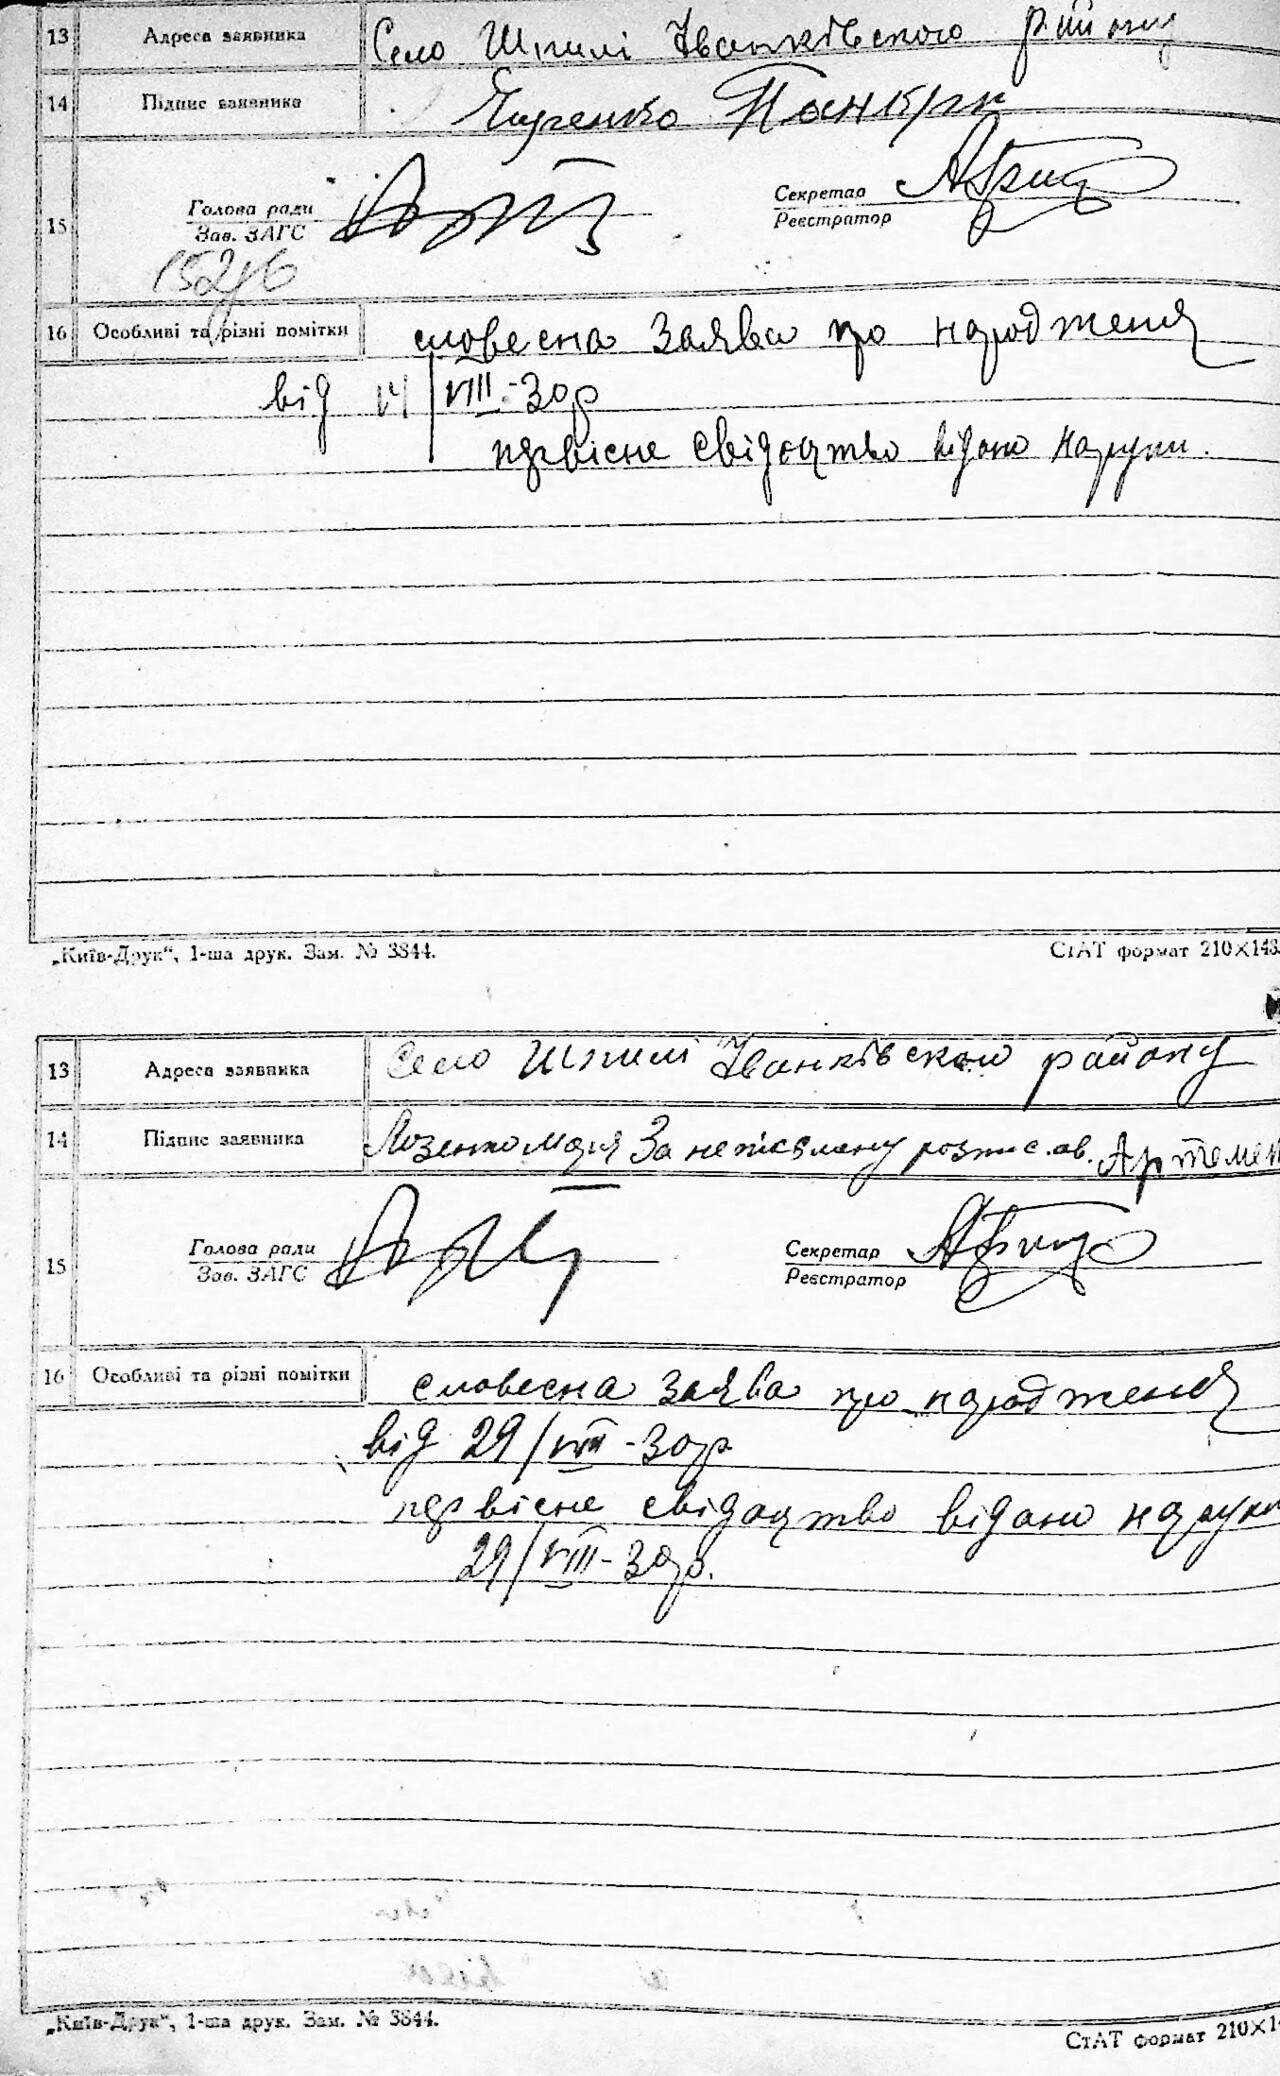 13 Адреса заявника Село Шпилі Іванківського району
14 Підпис заявника Ющенко Панкрат
15 Голова ради
Зав. ЗАГС
Секретар
Реєстратор
16 Особливі та різні помітки словесна заява про народженя
від 14/VIII-30р
первісне свідоцтво відано наруки.
„Київ-Друк“, 1-ша друк. Зам. № 3844.
СтАТ формат 210×148.
13 Адреса заявника Село Шпилі Іванківського району
14 Підпис заявника Лозенко Марія За неписьмену розпис.ав. Артемен
15 Голова ради
Зав. ЗАГС
Секретар
Реєстратор
16 Особливі та різні помітки словесна заява про народженя
від 29/VIII-30р
первісне свідоцтво відано наруки
29/VIII-30р.
„Київ-Друк“, 1-ша друк. Зам. № 3844.
СтАТ формат 210×14